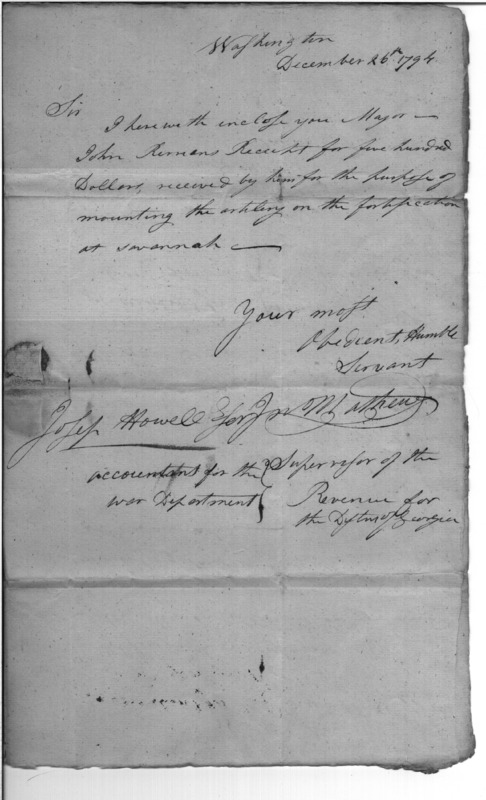 Washington
December 26th 1794
Sir
I herewith inclose you Major
John Bermans Receipt for five hundred
Dollars, received by him for the purpose of
mounting the artilery on the fortification
at savannah
Your most
Obedient, Humble
Servant
Josep Howell Esqr Jn Mathews
accountant for the { Supervisor of the
war Department { Revenue for
the Distric of Georgia